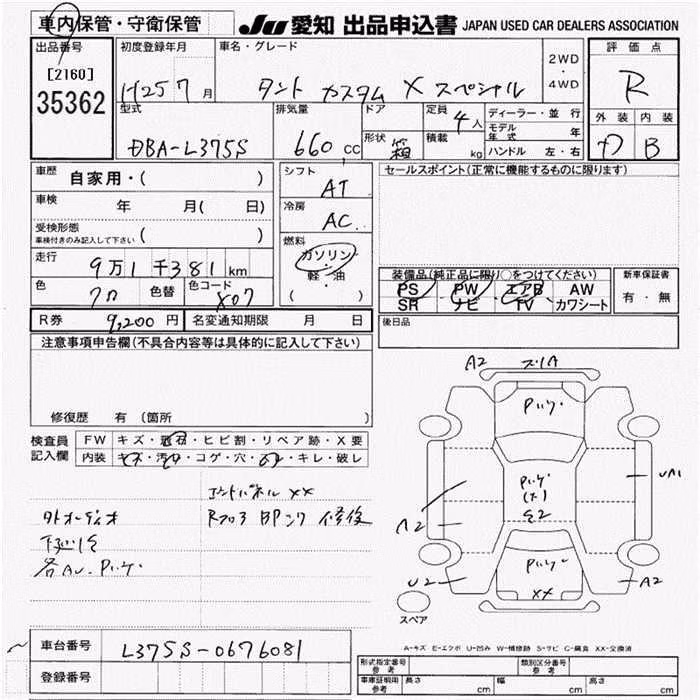 車内保管・守衛保管
JU 愛知 出品申込書 JAPAN USED CAR DEALERS ASSOCIATION
出品番号
[2160]
35362
初度登録年月
H25 7月
車名・グレード
タント カスタム X スペシャル
2WD
・
4WD
評価点
R
外装 内装
B
型式
DBA-L375S
排気量
660 cc
ドア
形状 箱
定員 4人
積載 kg
ディーラー・並行
モデル年式 年
ハンドル 左・右
車歴
自家用・( )
車検 年 月( 日)
受検形態
車検付きのみ記入して下さい ( )
走行
9万1千381km
色 クロ 色替 色コード X07
R券 9,200円 名変通知期限 月 日
シフト
AT
冷房
AC
燃料
ガソリン
・
軽・油
( )
セールスポイント(正常に機能するものに限ります)
装備品(純正品に限り○をつけてください)
PS PW エアB AW
SR ナビ TV カワシート
新車保証書
有・無
後日品
注意事項申告欄(不具合内容等は具体的に記入して下さい)
修復歴 有(箇所 )
検査員
記入欄
FW キズ・飛石・ヒビ割・リペア跡・X要
内装 キズ・汚れ・コゲ・穴・・キレ・破レ
XX
下廻り
修後
A2
A
A2
UA1
A2
U2
XX
スペア
A-キズ E-エクボ U-凹み W-補修跡 S-サビ C-腐食 XX-交換済
車台番号 L375S-0676081
登録番号
形式指定番号
参考
類別区分番号
参考
車庫証明用
参考
長さ cm 幅 cm 高さ cm